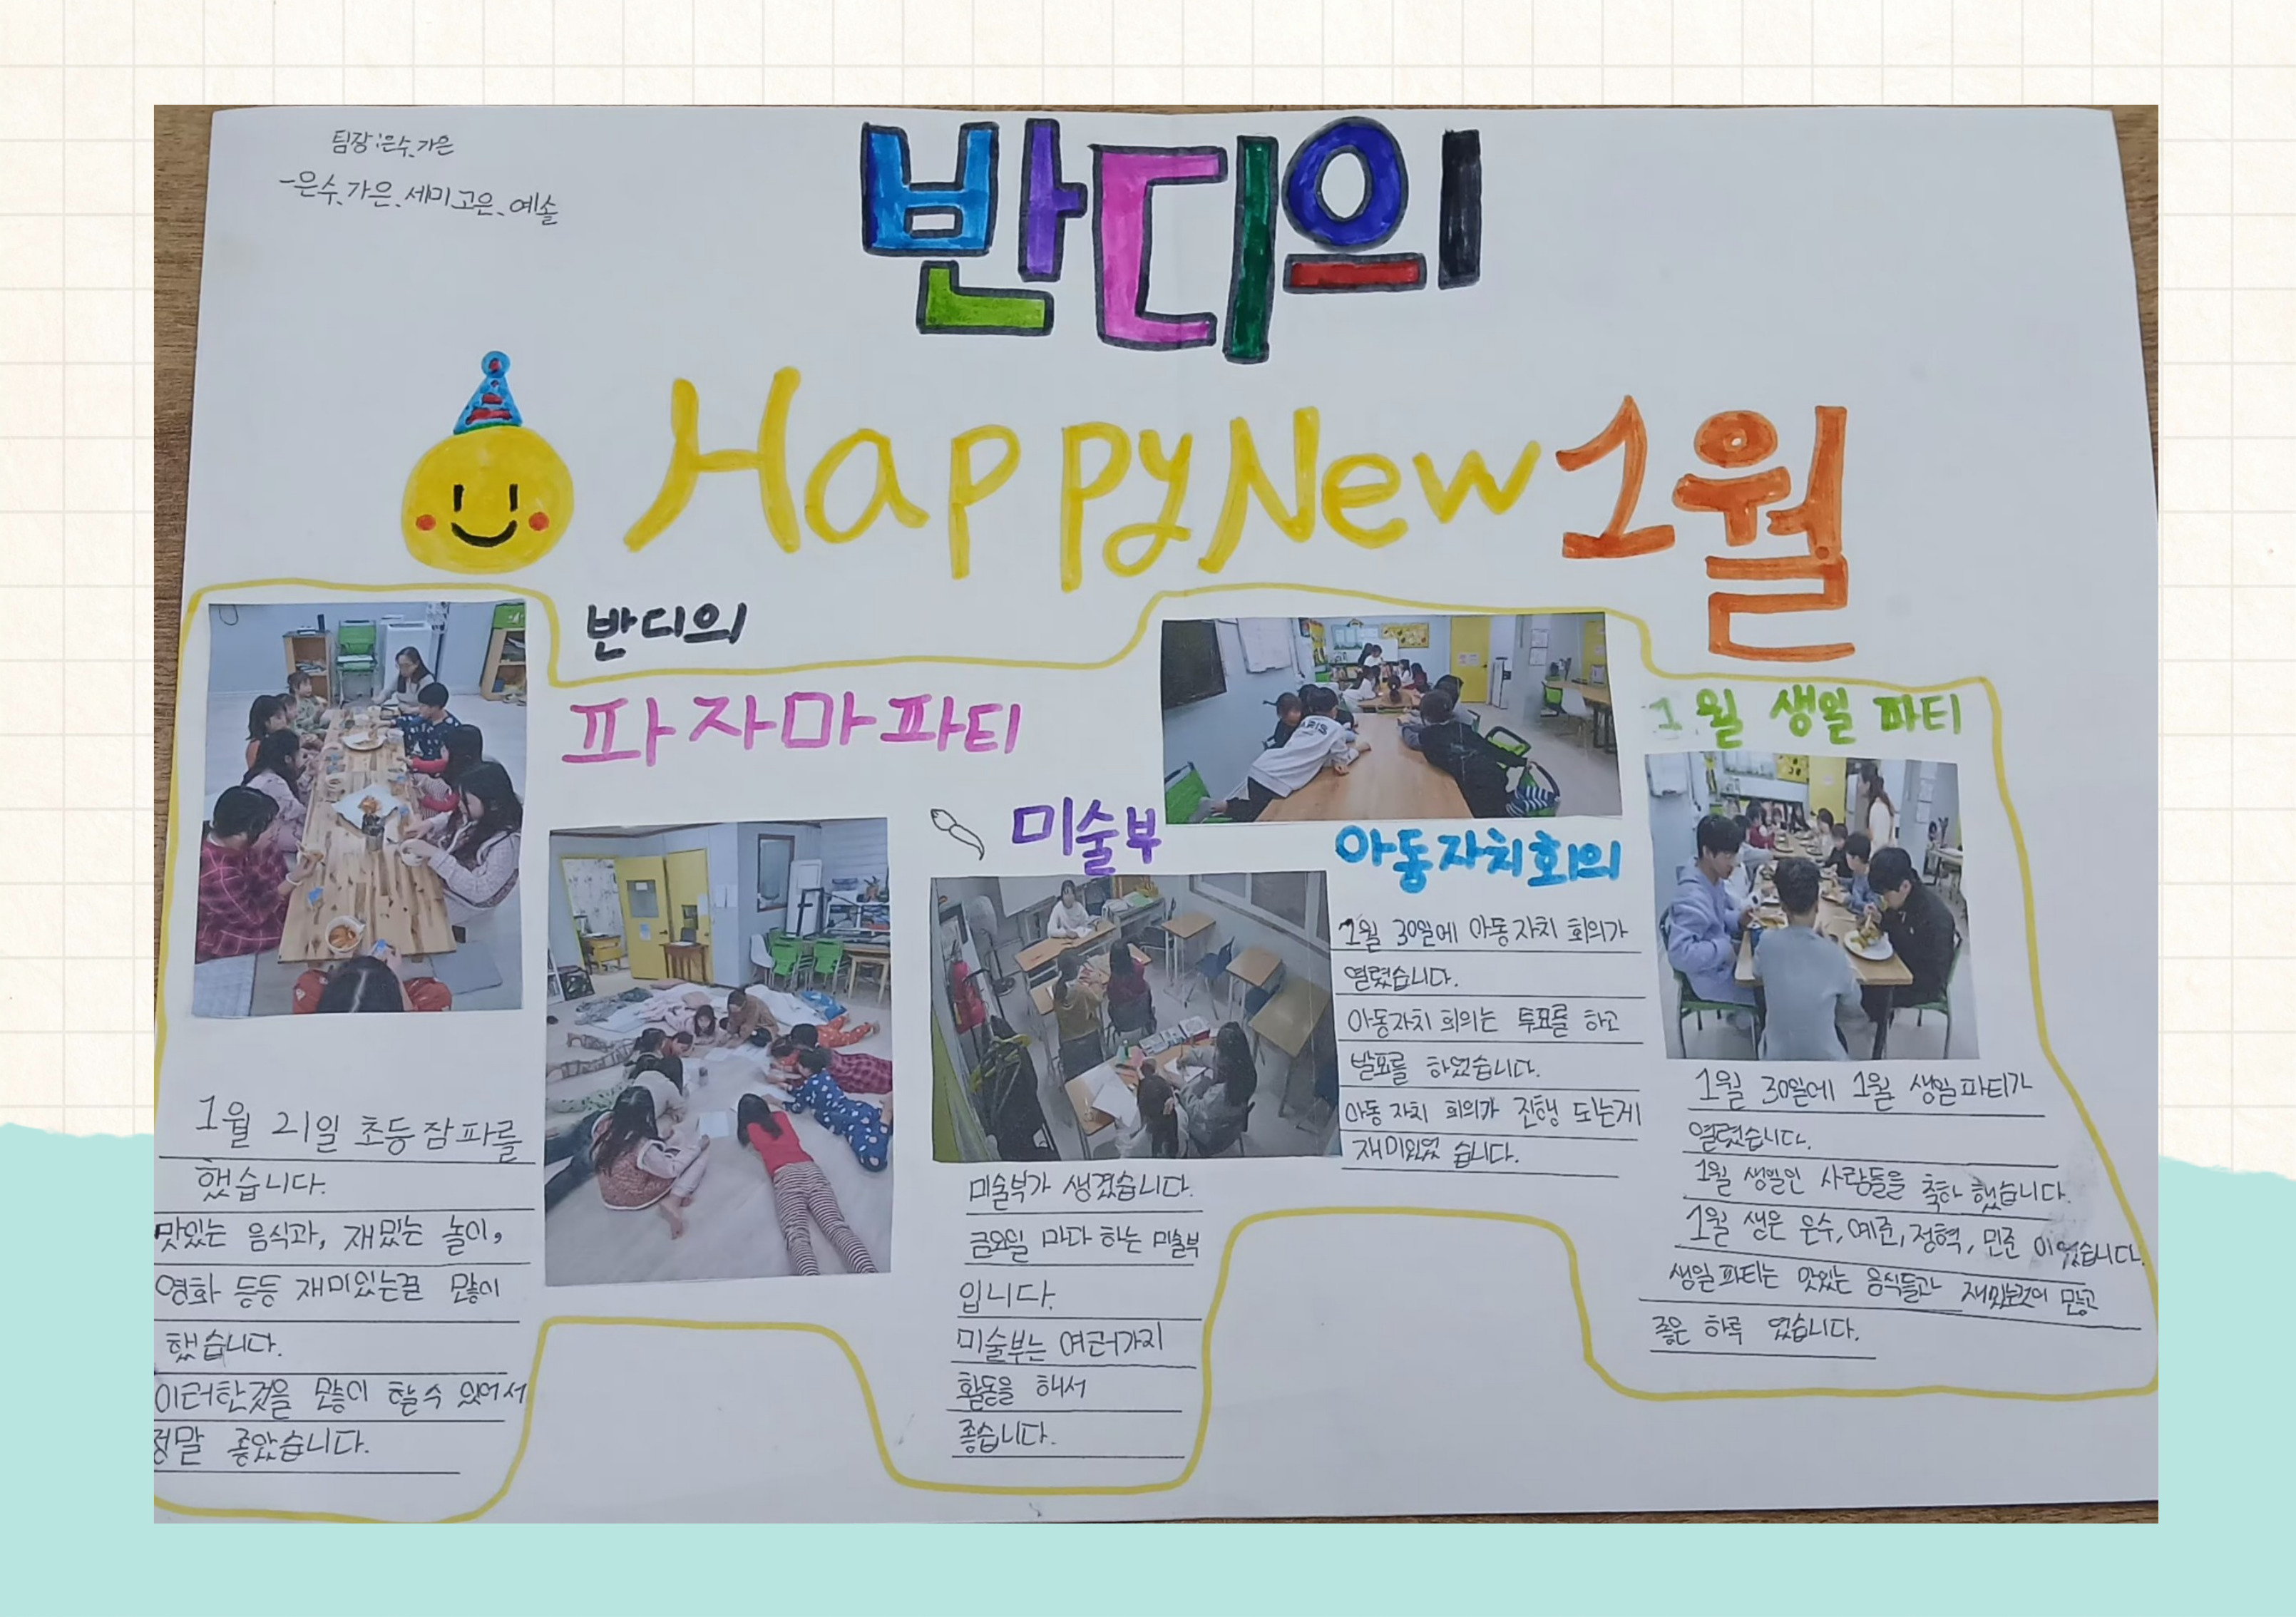 팀장:은수,가은
-은수,가은,세미,고은,예솔
반디의
Happy New 1월
반디의
파자마파티
1월 21일 초등잠파를
했습니다.
맛있는 음식과, 재밌는 놀이,
영화 등등 재미있는걸 많이
했습니다.
이러한것을 많이 할수 있어서
정말 좋았습니다.
미술부
미술부가 생겼습니다.
금요일 마다 하는 미술부
입니다.
미술부는 여러가지
활동을 해서
좋습니다.
아동자치회의
1월 30일에 아동자치 회의가
열렸습니다.
아동자치 회의는 투표를 하고
발표를 하였습니다.
아동 자치 회의가 진행 되는게
재미있었 습니다.
1월 생일 파티
1월 30일에 1월 생일파티가
열렸습니다.
1월 생일인 사람들을 축하 했습니다.
1월 생은 은수, 예준, 정혁, 민준 이었습니다.
생일파티는 맛있는 음식들과 많고
좋은 하루 였습니다.